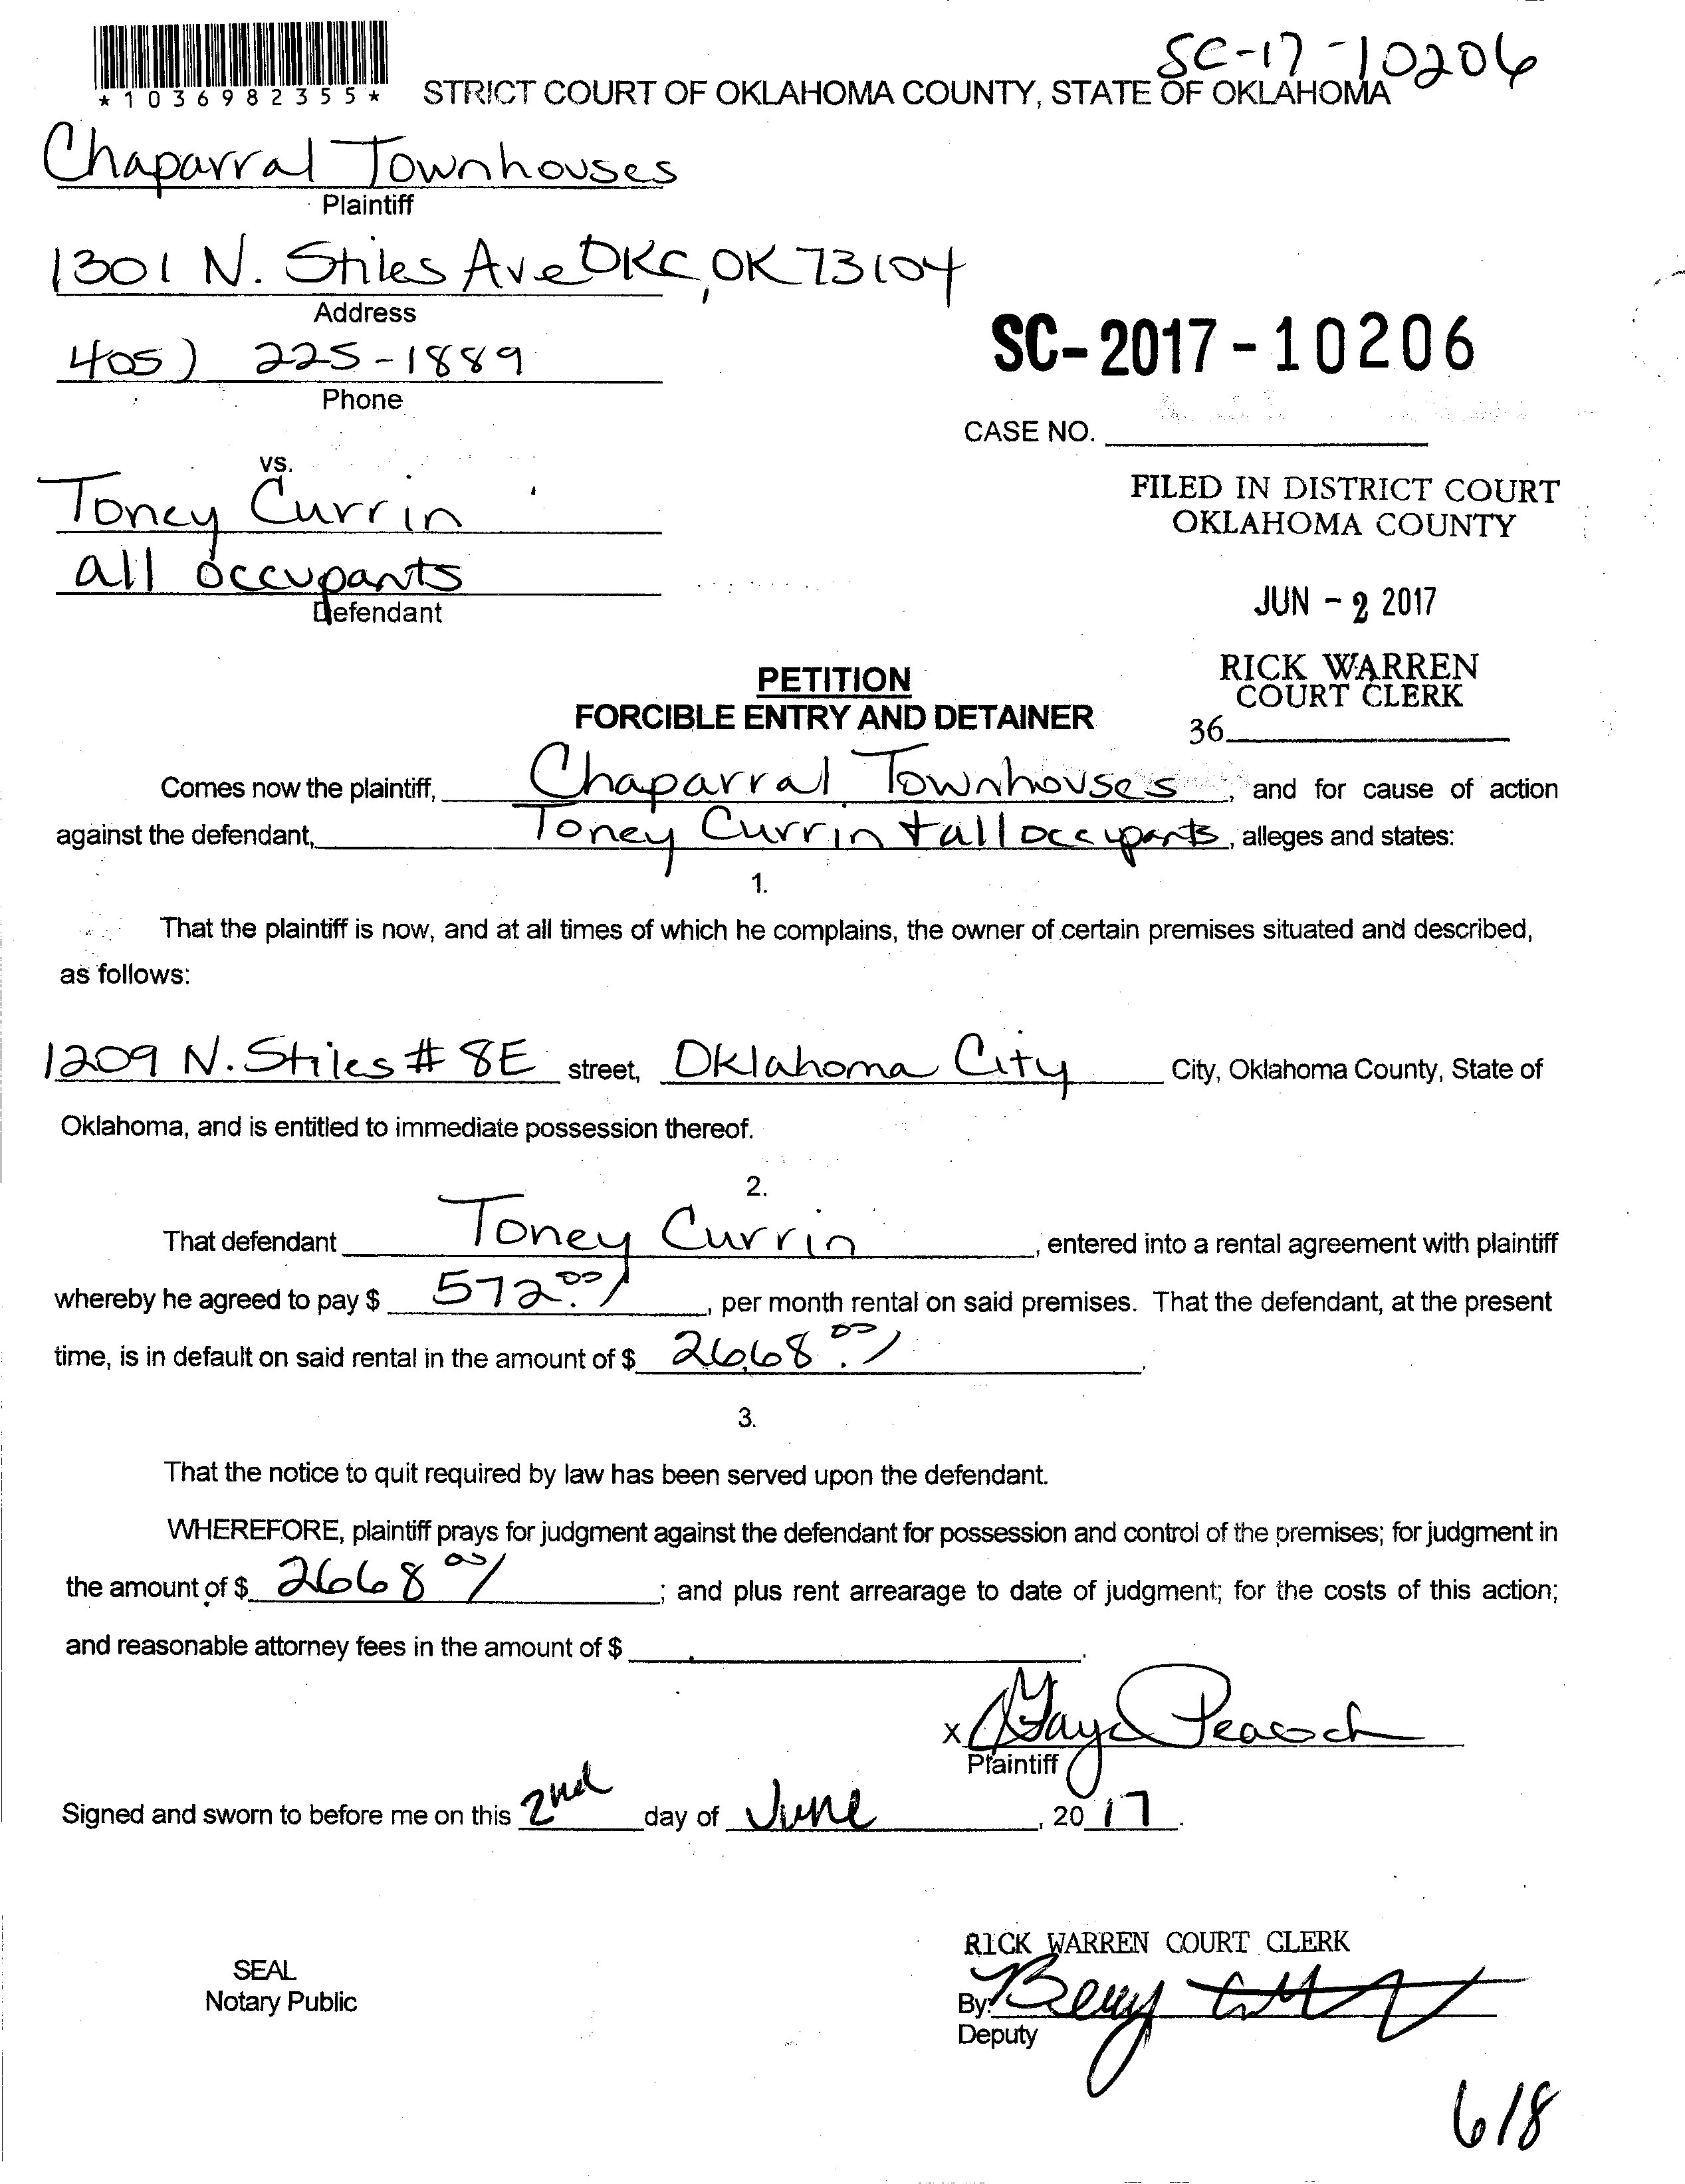 SC-17-10206
*1036982355*
STRICT COURT OF OKLAHOMA COUNTY, STATE OF OKLAHOMA
Chaparral Townhouses
Plaintiff
1301 N. Stiles Ave OKC, OK 73104
Address
405) 225-1889
Phone
SC-2017-10206
CASE NO.
vs.
Toney Currin
all occupants
Defendant
FILED IN DISTRICT COURT
OKLAHOMA COUNTY
JUN - 2 2017
RICK WARREN
COURT CLERK
36
PETITION
FORCIBLE ENTRY AND DETAINER
Comes now the plaintiff, Chaparral Townhouses, and for cause of action
against the defendant, Toney Currin + all occupants, alleges and states:
1.
That the plaintiff is now, and at all times of which he complains, the owner of certain premises situated and described,
as follows:
1209 N. Stiles # 8E street, Oklahoma City City, Oklahoma County, State of
Oklahoma, and is entitled to immediate possession thereof.
2.
That defendant Toney Currin, entered into a rental agreement with plaintiff
whereby he agreed to pay $ 572.00/, per month rental on said premises. That the defendant, at the present
time, is in default on said rental in the amount of $ 2668.00/.
3.
That the notice to quit required by law has been served upon the defendant.
WHEREFORE, plaintiff prays for judgment against the defendant for possession and control of the premises; for judgment in
the amount of $ 2668 00/; and plus rent arrearage to date of judgment; for the costs of this action;
and reasonable attorney fees in the amount of $.
X Gaye Peacock
Plaintiff
Signed and sworn to before me on this 2nd day of June, 2017.
RICK WARREN COURT CLERK
SEAL
Notary Public
By:
Deputy
6/8